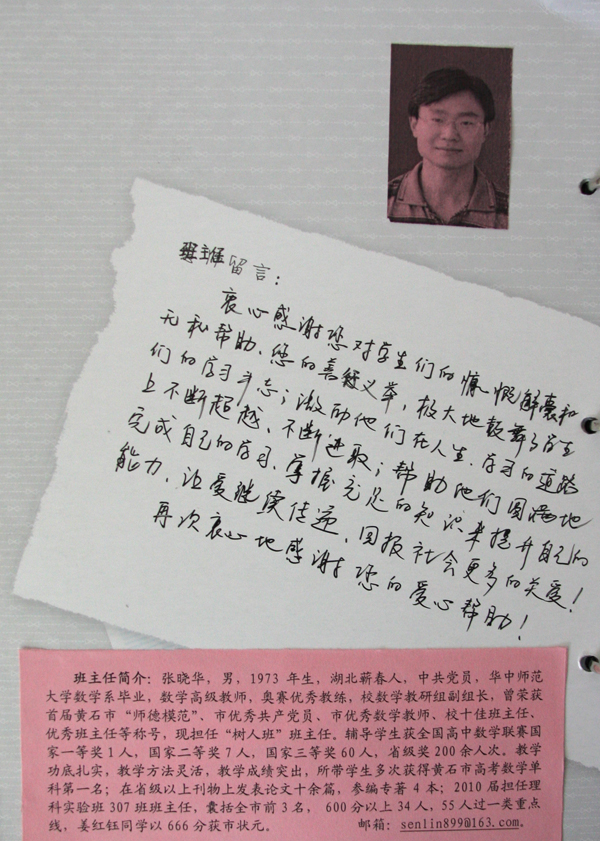 班主任留言：
衷心感谢您对学生们的慷慨解囊和
无私帮助、您的善行义举，极大地鼓舞了学生
们的学习斗志；激励他们在人生、学习的道路
上不断超越、不断进取；帮助他们圆满地
完成自己的学习、掌握充足的知识来提升自己的
能力，让爱继续传递，回报社会更多的关爱！
再次衷心地感谢您的爱心帮助！
班主任简介：张晓华，男，1973 年生，湖北蕲春人，中共党员，华中师范
大学数学系毕业，数学高级教师，奥赛优秀教练，校数学教研组副组长，曾荣获
首届黄石市“师德模范”、市优秀共产党员、市优秀数学教师、校十佳班主任、
优秀班主任等称号，现担任“树人班”班主任。辅导学生获全国高中数学联赛国
家一等奖1人，国家二等奖7人，国家三等奖60人，省级奖 200余人次。教学
功底扎实，教学方法灵活，教学成绩突出，所带学生多次获得黄石市高考数学单
科第一名；在省级以上刊物上发表论文十余篇，参编专著 4 本；2010 届担任理
科实验班 307 班班主任，囊括全市前3名， 600分以上34人，55人过一类重点
线，姜红钰同学以 666 分获市状元。 邮箱：senlin899@163.com。